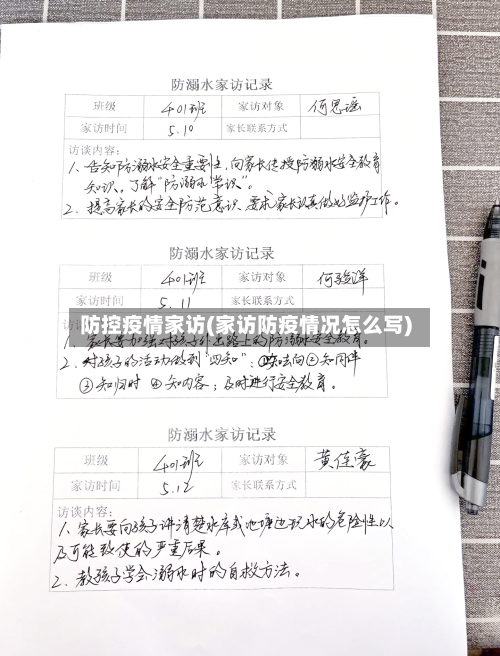 防溺水家访记录
班级 401班 家访对象 何思谣
家访时间 5.10 家长联系方式
访谈内容:
1、告知防溺水安全重要性,向家长传授防溺水安全教育
知识。了解“防溺水常识”。
2、提高家长的安全防范意识,要求家长认真做好监护工作。
防溺水家访记录
班级 401班 家访对象 何骏洋
家访时间 5.11 家长联系方式
防控疫情家访(家访防疫情况怎么写)
1、家长要加强对孩子外出路上的防溺水安全教育。
2、对孩子的活动做到“四知”:①知去向②知同伴
③知归时 ④知内容;及时进行安全教育。
防溺水家访记录
班级 401班 家访对象 黄佳豪
家访时间 5.12 家长联系方式
访谈内容:
1、家长要向孩子讲清楚水库或池塘边玩水的危险性以
及可能致使的严重后果。
2、教孩子学会溺水时的自救方法。